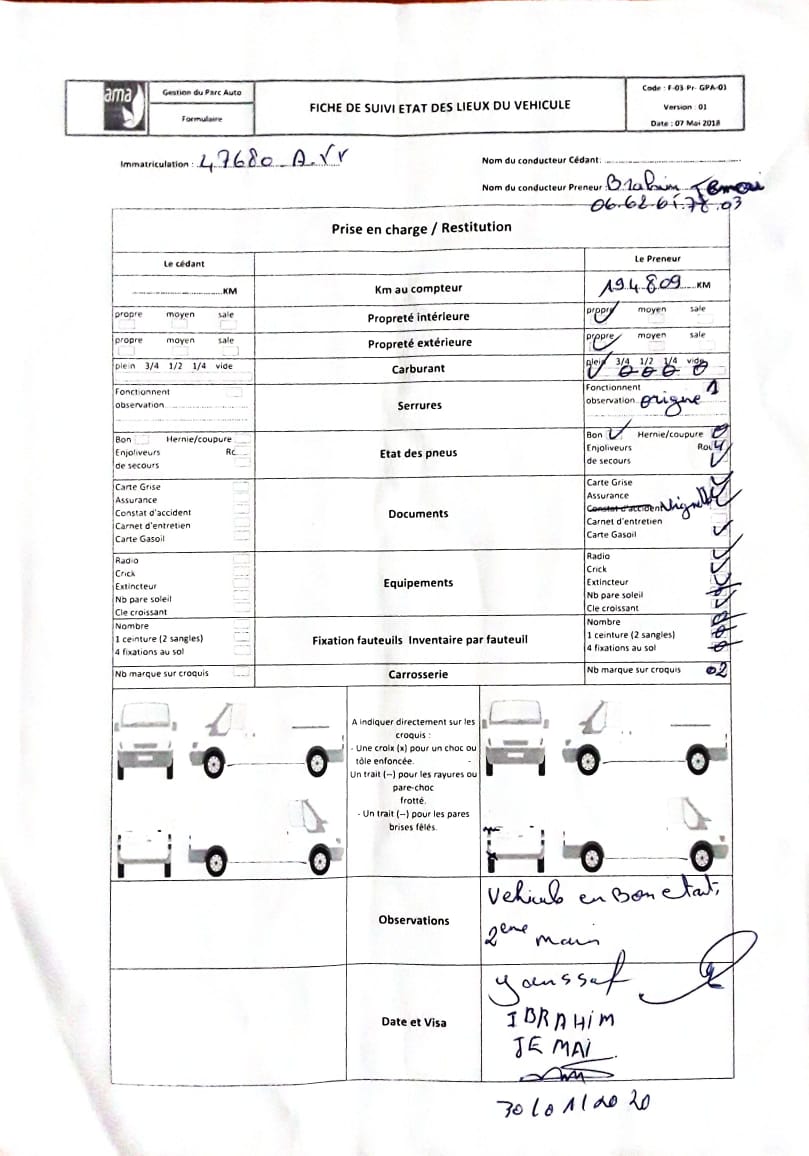 ama
Gestion du Parc Auto
Formulaire
FICHE DE SUIVI ETAT DES LIEUX DU VEHICULE
Code : F-03-Pr- GPA-01
Version : 01
Date : 07 Mai 2018
Immatriculation : 47680
Nom du conducteur Cédant:
Nom du conducteur Preneur: Brahim
06.62.61.78.03
Prise en charge / Restitution
Le cédant
Le Preneur
KM Km au compteur 194.809 KM
propre moyen sale Propreté intérieure propre moyen sale
propre moyen sale Propreté extérieure propre moyen sale
plein 3/4 1/2 1/4 vide Carburant plein 3/4 1/2 1/4 vide
Fonctionnent Serrures Fonctionnent 1
observation observation origine
Bon Hernie/coupure Etat des pneus Bon Hernie/coupure
Enjoliveurs Enjoliveurs
de secours de secours
Carte Grise Documents Carte Grise
Assurance Assurance
Constat d'accident Constat d'accident
Carnet d'entretien Carnet d'entretien
Carte Gasoil Carte Gasoil
Radio Equipements Radio
Crick Crick
Extincteur Extincteur
Nb pare soleil Nb pare soleil
Cle croissant Cle croissant
Nombre Fixation fauteuils Inventaire par fauteuil Nombre
1 ceinture (2 sangles) 1 ceinture (2 sangles)
4 fixations au sol 4 fixations au sol
Nb marque sur croquis Carrosserie Nb marque sur croquis 02
A indiquer directement sur les
croquis :
- Une croix (x) pour un choc ou
tôle enfoncée. -
Un trait (--) pour les rayures ou
pare-choc
frotté.
- Un trait (--) pour les pares
brises fêlés.
Observations
Vehicule en Bon etat,
2eme main
Date et Visa
Youssef
IBRAHIM
JEMAI
30/01/2020